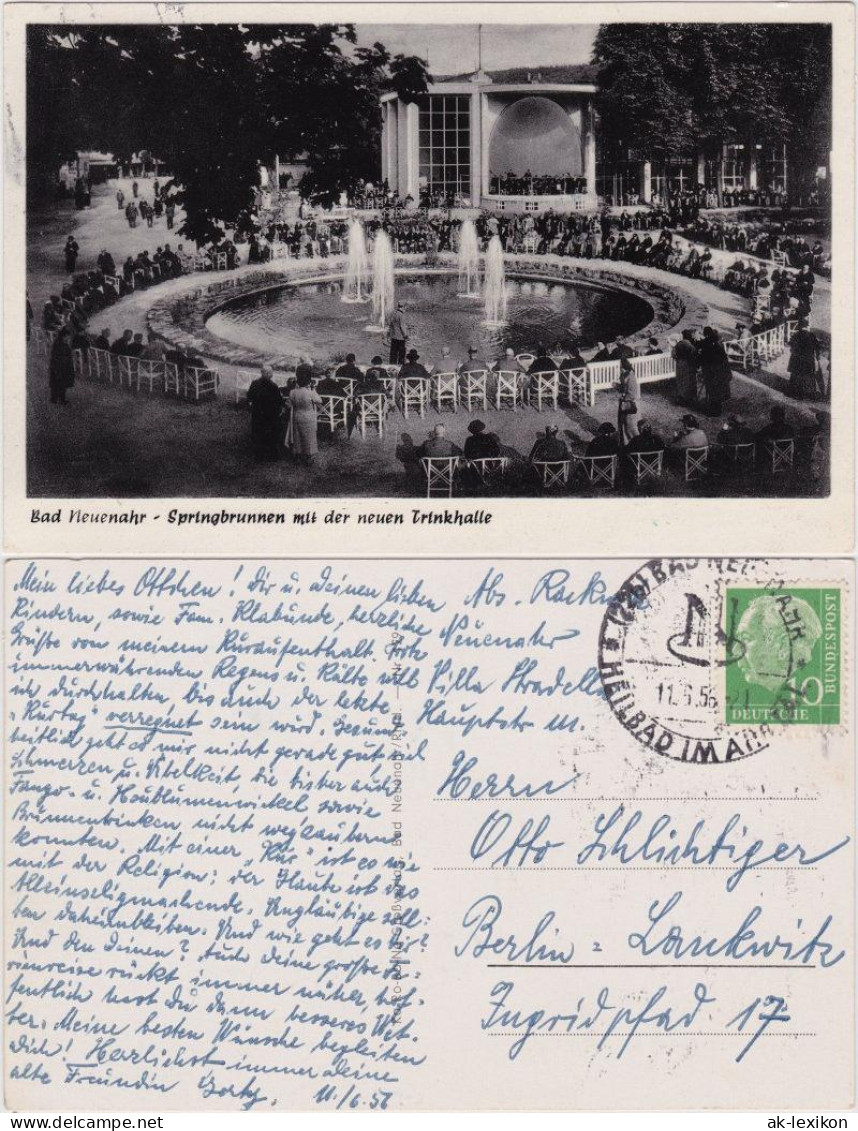 Bad Neuenahr - Springbrunnen mit der neuen Trinkhalle
Mein liebes Ottchen! Dir u. deinen lieben
Kindern, sowie Fam. Klabunde, herzliche
Grüße von meinem Kuraufenthalt. Trotz
immerwährenden Regens u. Kälte will
ich durchhalten, bis auch der letzte
„Kurtag" verregnet sein wird. Gesund-
heitlich geht es mir nicht gerade gut, viel
Schmerzen u. Übelkeit, die bisher auch
Fango- u. Heublumenwickel sowie
Brunnentrinken nicht wegzaubern
konnten. Mit einer „Kur" ist es wie
mit der Religion: der Glaube ist das
Alleinseligmachende. Ungläubige soll-
ten daheimbleiben. Und wie geht es dir?
Und den Deinen? Auch deine große
rückt immer näher, hof-
fentlich hast Du dann besseres Wet-
ter. Meine besten Wünsche begleiten
Dich! Herzlichst immer deine
alte Freundin
11/6.56
Abs.
Neuenahr
Villa
Hauptstr
Bad Neuenahr
HEILBAD IM
11.6.56
DEUTSCHE
BUNDESPOST
10
Herrn
Otto Schlichtiger
Berlin = Lankwitz
Ingridpfad 17
ak-lexikon